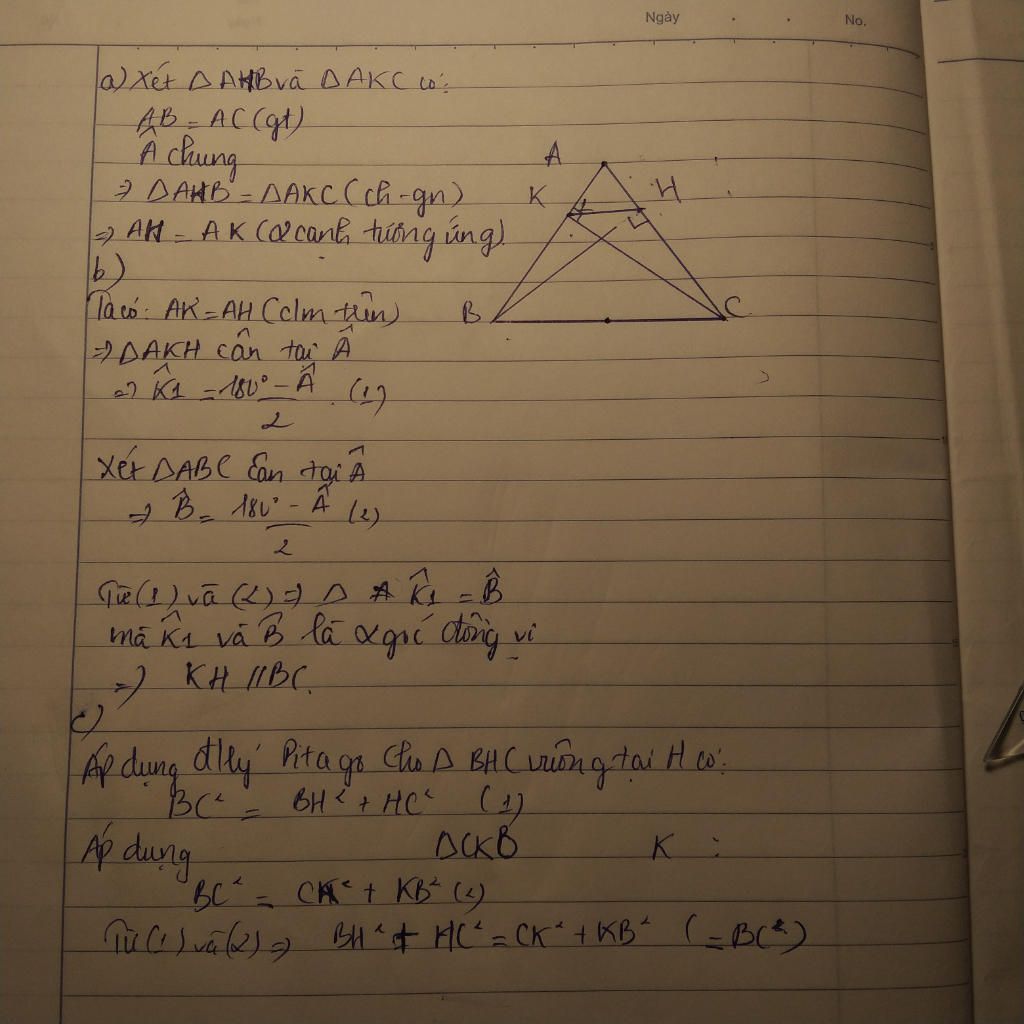 Ngày . . No.
a) Xét Δ AHB và Δ AKC có:
AB = AC (gt)
Â chung
=> ΔAHB = ΔAKC (ch-gn)
=> AH = AK (2 cạnh tương ứng)
A
K
H
B
C
b)
Ta có: AK = AH (c/m trên)
=> ΔAKH cân tại Â
=> K̂1 = 180° - Â (1)
2
Xét ΔABC cân tại Â
=> B̂ = 180° - Â (2)
2
Từ (1) và (2) => Δ K̂1 = B̂
mà K̂1 và B̂ là 2 góc đồng vị
=> KH // BC.
c)
Áp dụng đ/lý Pitago cho Δ BHC vuông tại H có:
BC² = BH² + HC² (1)
Áp dụng ΔCKB K :
BC² = CK² + KB² (2)
Từ (1) và (2) => BH² + HC² = CK² + KB² (= BC²)